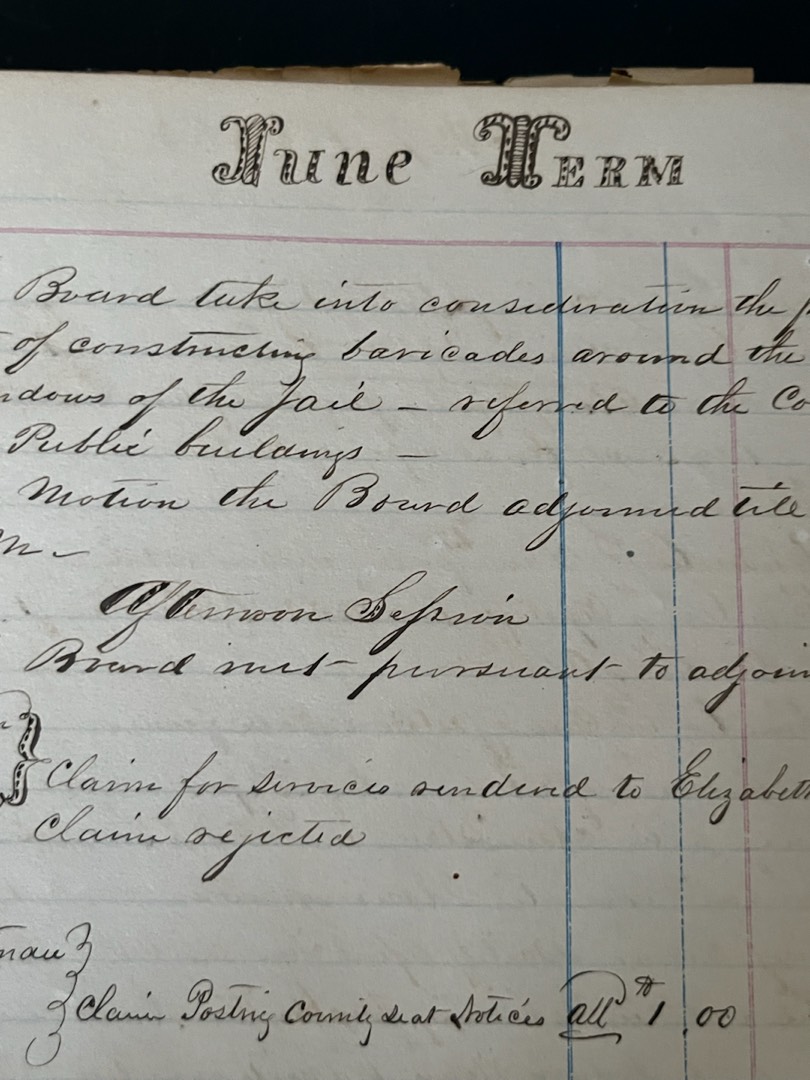 June Term
Board take into consideration the
of constructing baricades around the
of the Jail – referred to the Co
Public buildings –
Motion the Board adjourned till
M –
Afternoon Session
Board met pursuant to adjourn
Claim for services rendered to Elizabeth
Claim rejected
Claim Posting County seat Notices all $ 1.00